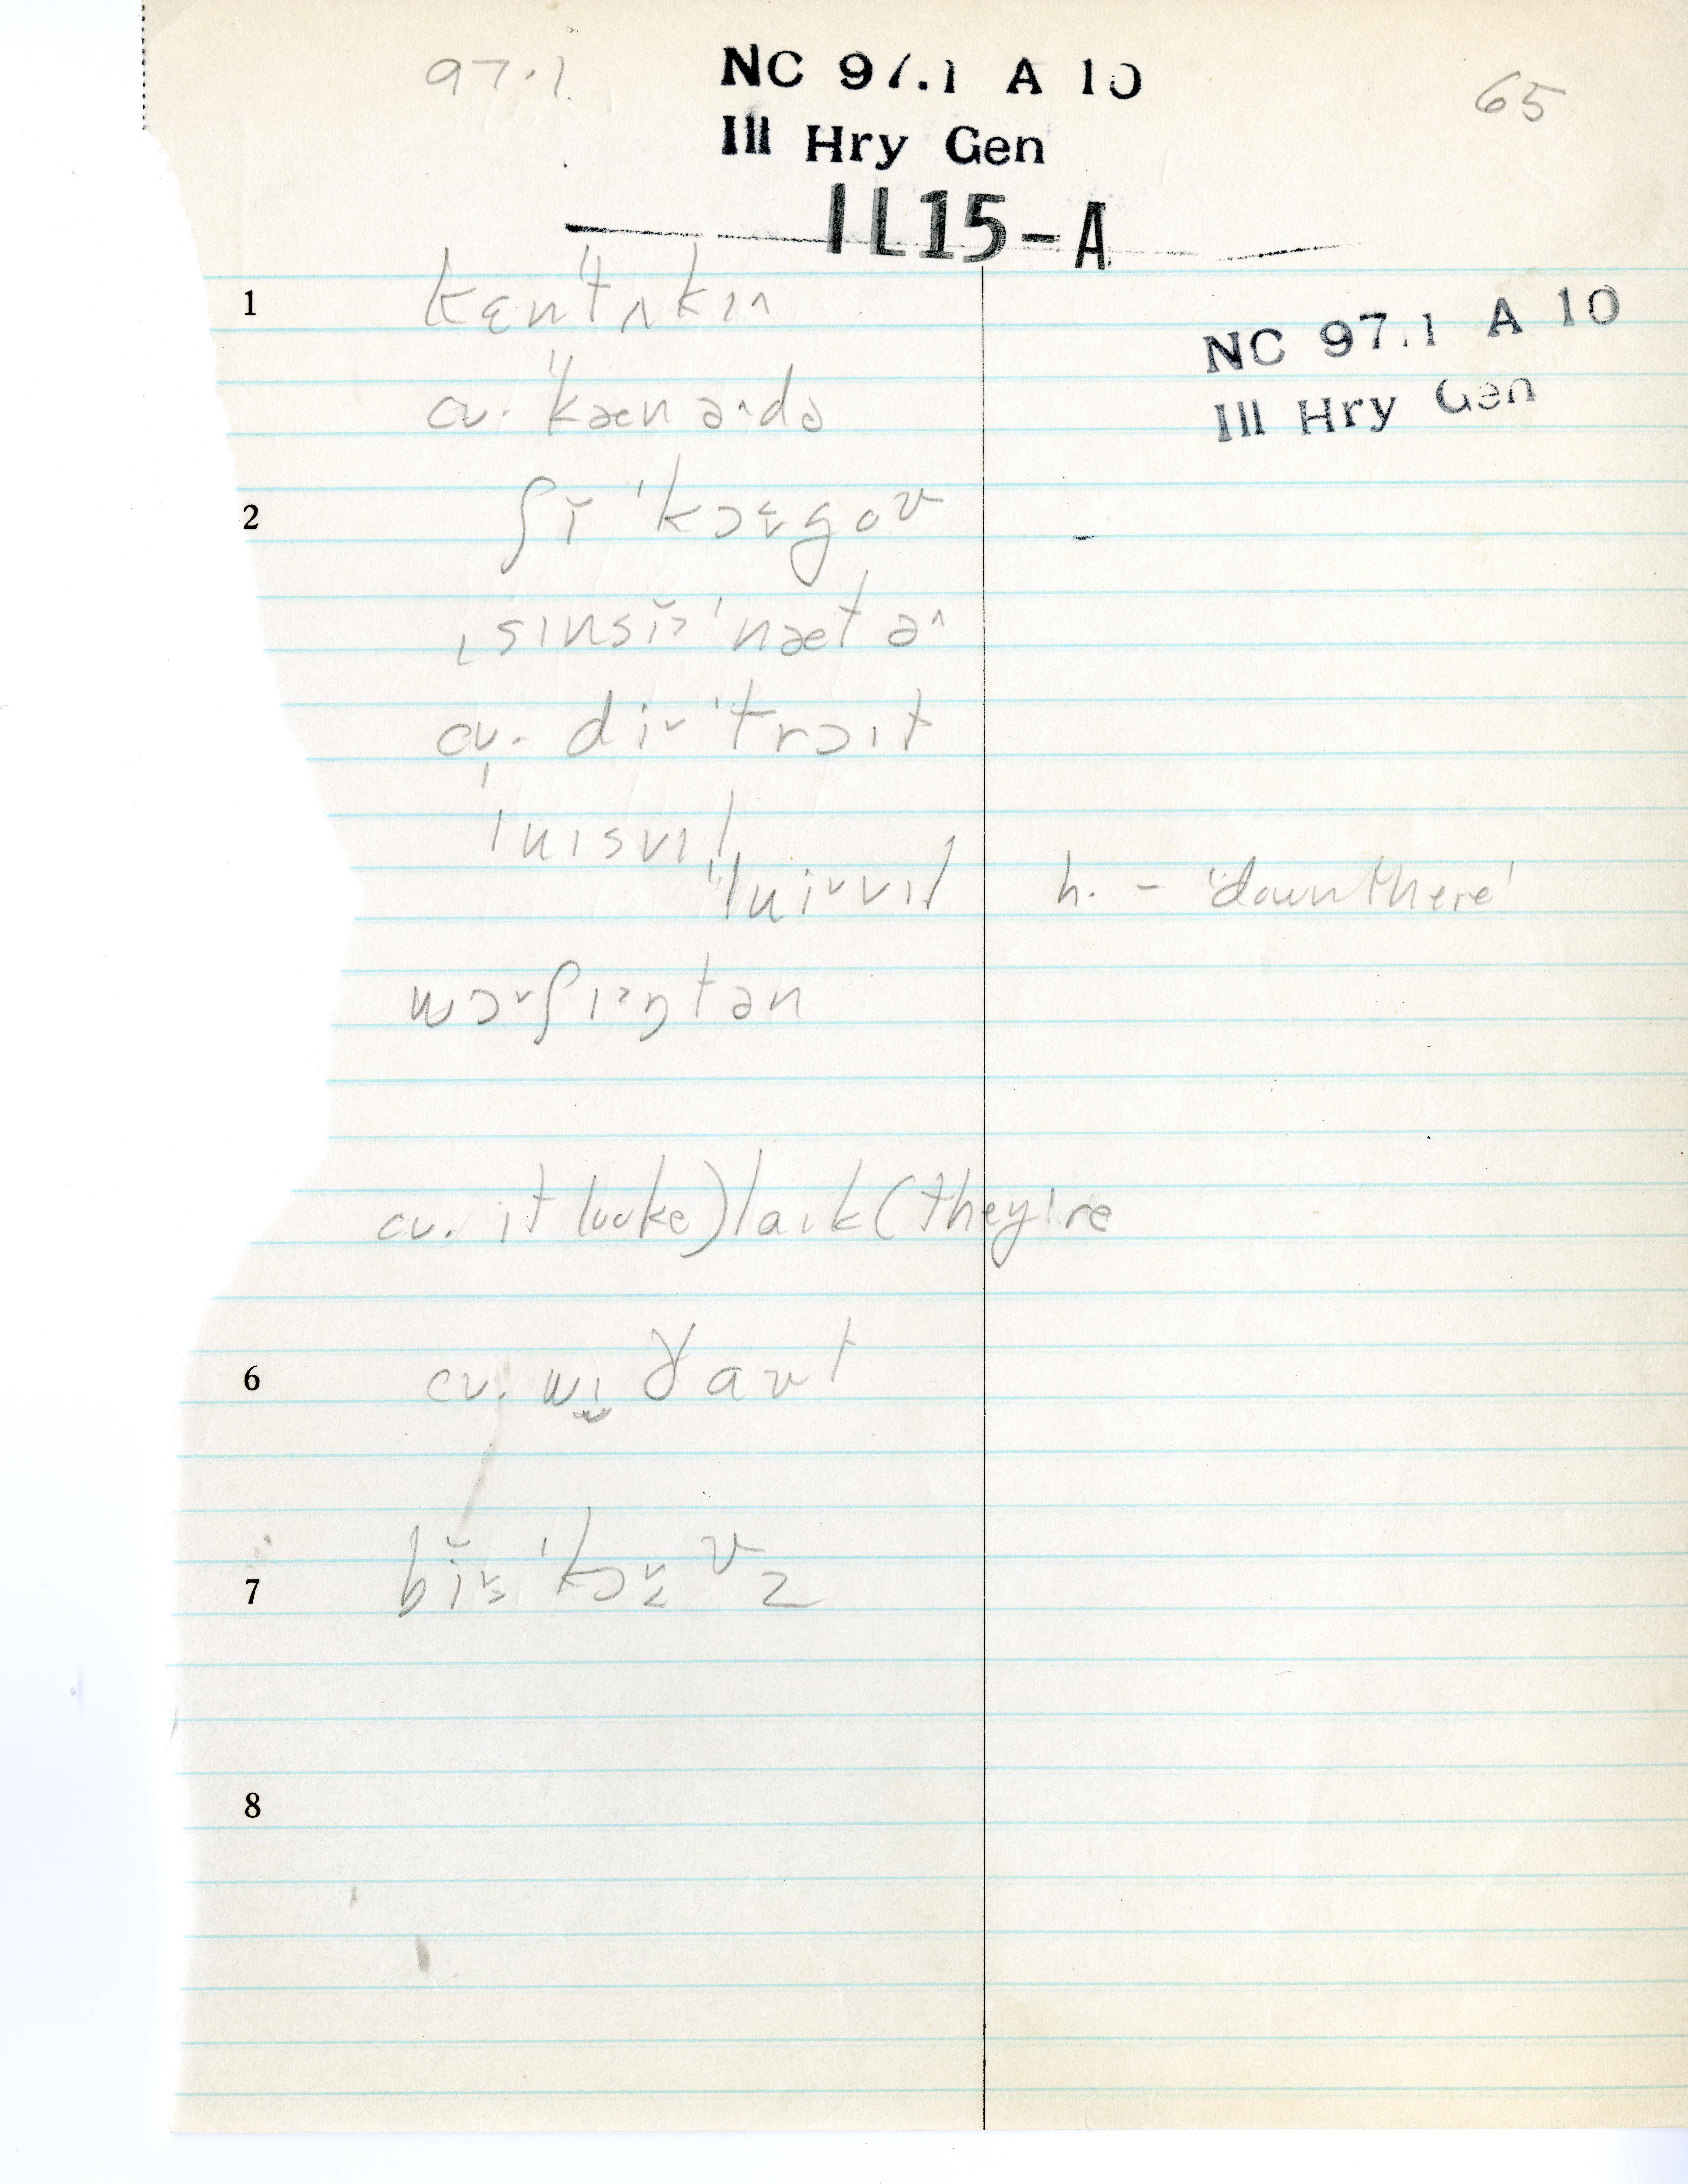 97.1
NC 97.1 A 10
65
Ill Hry Gen
IL15-A
1 kɛn"tʌkɪ^
NC 97.1 A 10
Ill Hry Gen
cv. "kænə^də
2 ʃĭ 'kɔɛgoʊ
ˌsɪnsĭ 'nætə^
cv. diˇ 'trɔɪt
'luɪsvɪl
"luiˇvɪl h. – 'down there'
wɔˇʃɪ˃ŋtən
cv. it looke)laɪk(they're
6 cv. wɪðaʊt
7
8